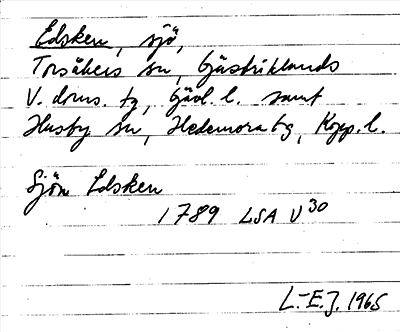 Edsken, sjö,
Torsåkers sn, Gästriklands
V. doms. tg, Gävl. l. samt
Husby sn, Hedemora tg, Kopp. l.
Sjön Edsken
1789 LSA V 30
L.-E.J. 1965